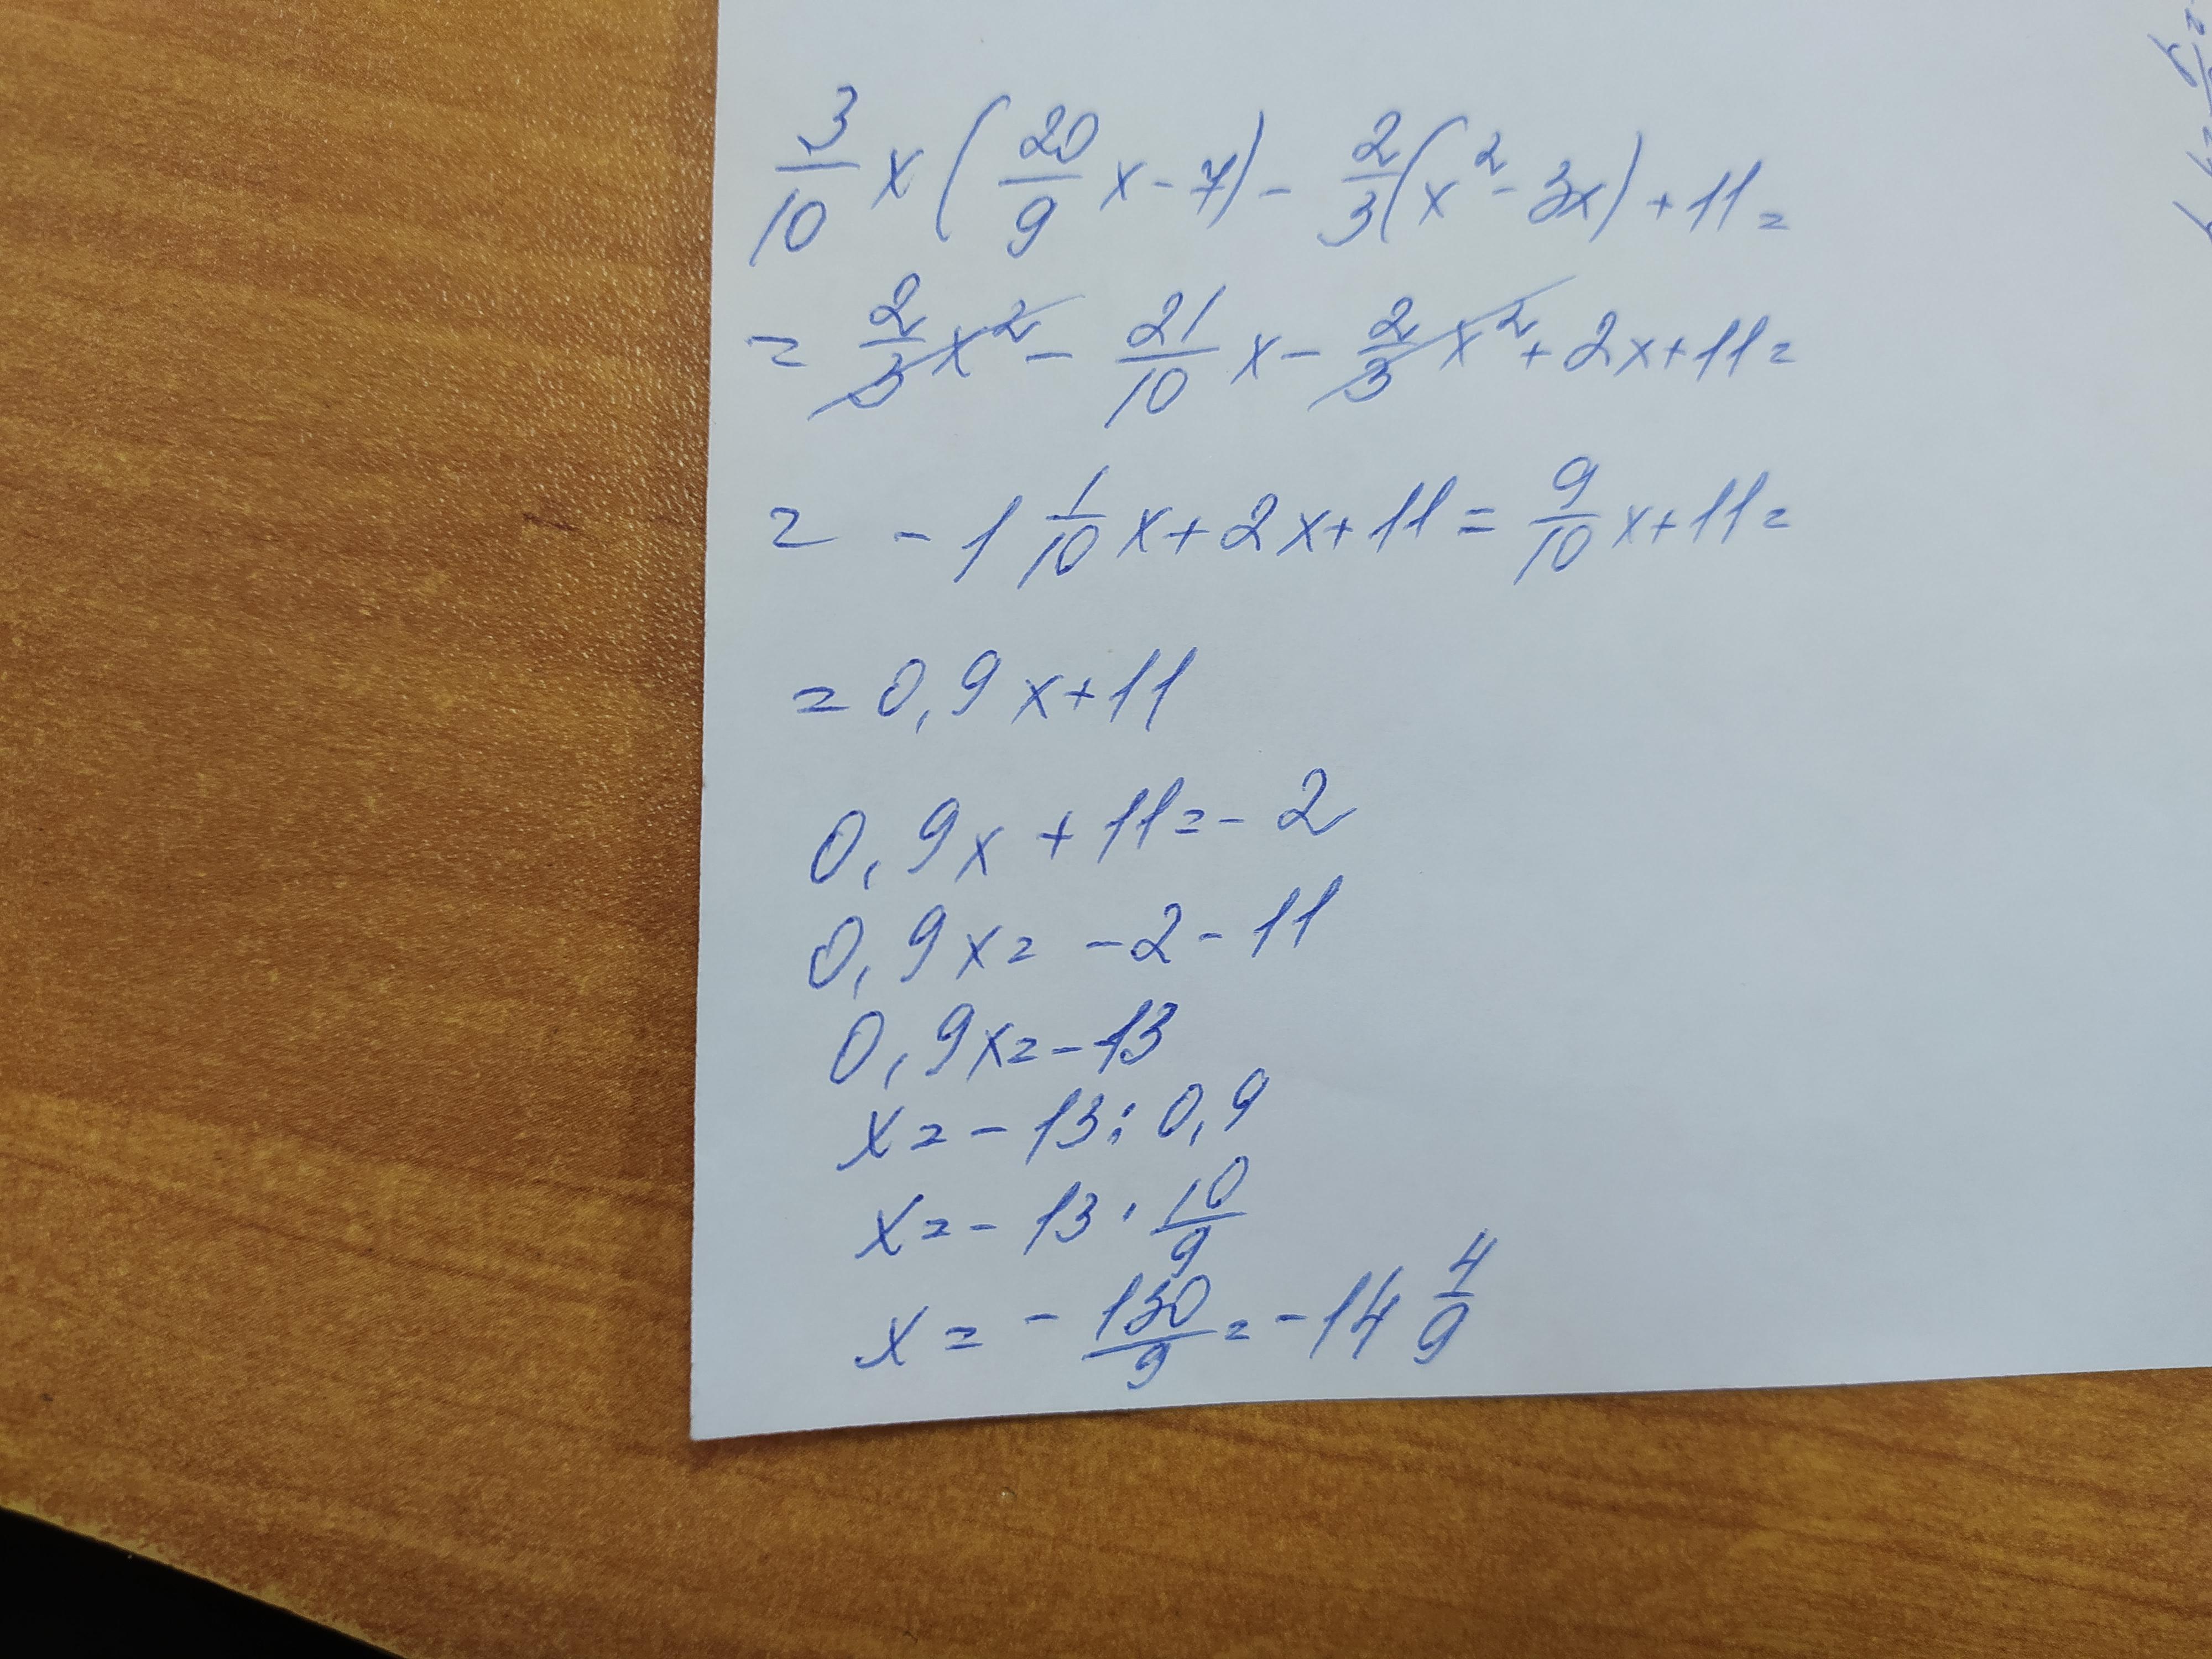 3/10 x (20/9 x - 7) - 2/3 (x² - 3x) + 11 =
= 2/3 x² - 21/10 x - 2/3 x² + 2x + 11 =
= - 1 1/10 x + 2x + 11 = 9/10 x + 11 =
= 0,9x + 11
0,9x + 11 = - 2
0,9x = - 2 - 11
0,9x = - 13
x = - 13 : 0,9
x = - 13 · 10/9
x = - 130/9 = - 14 4/9